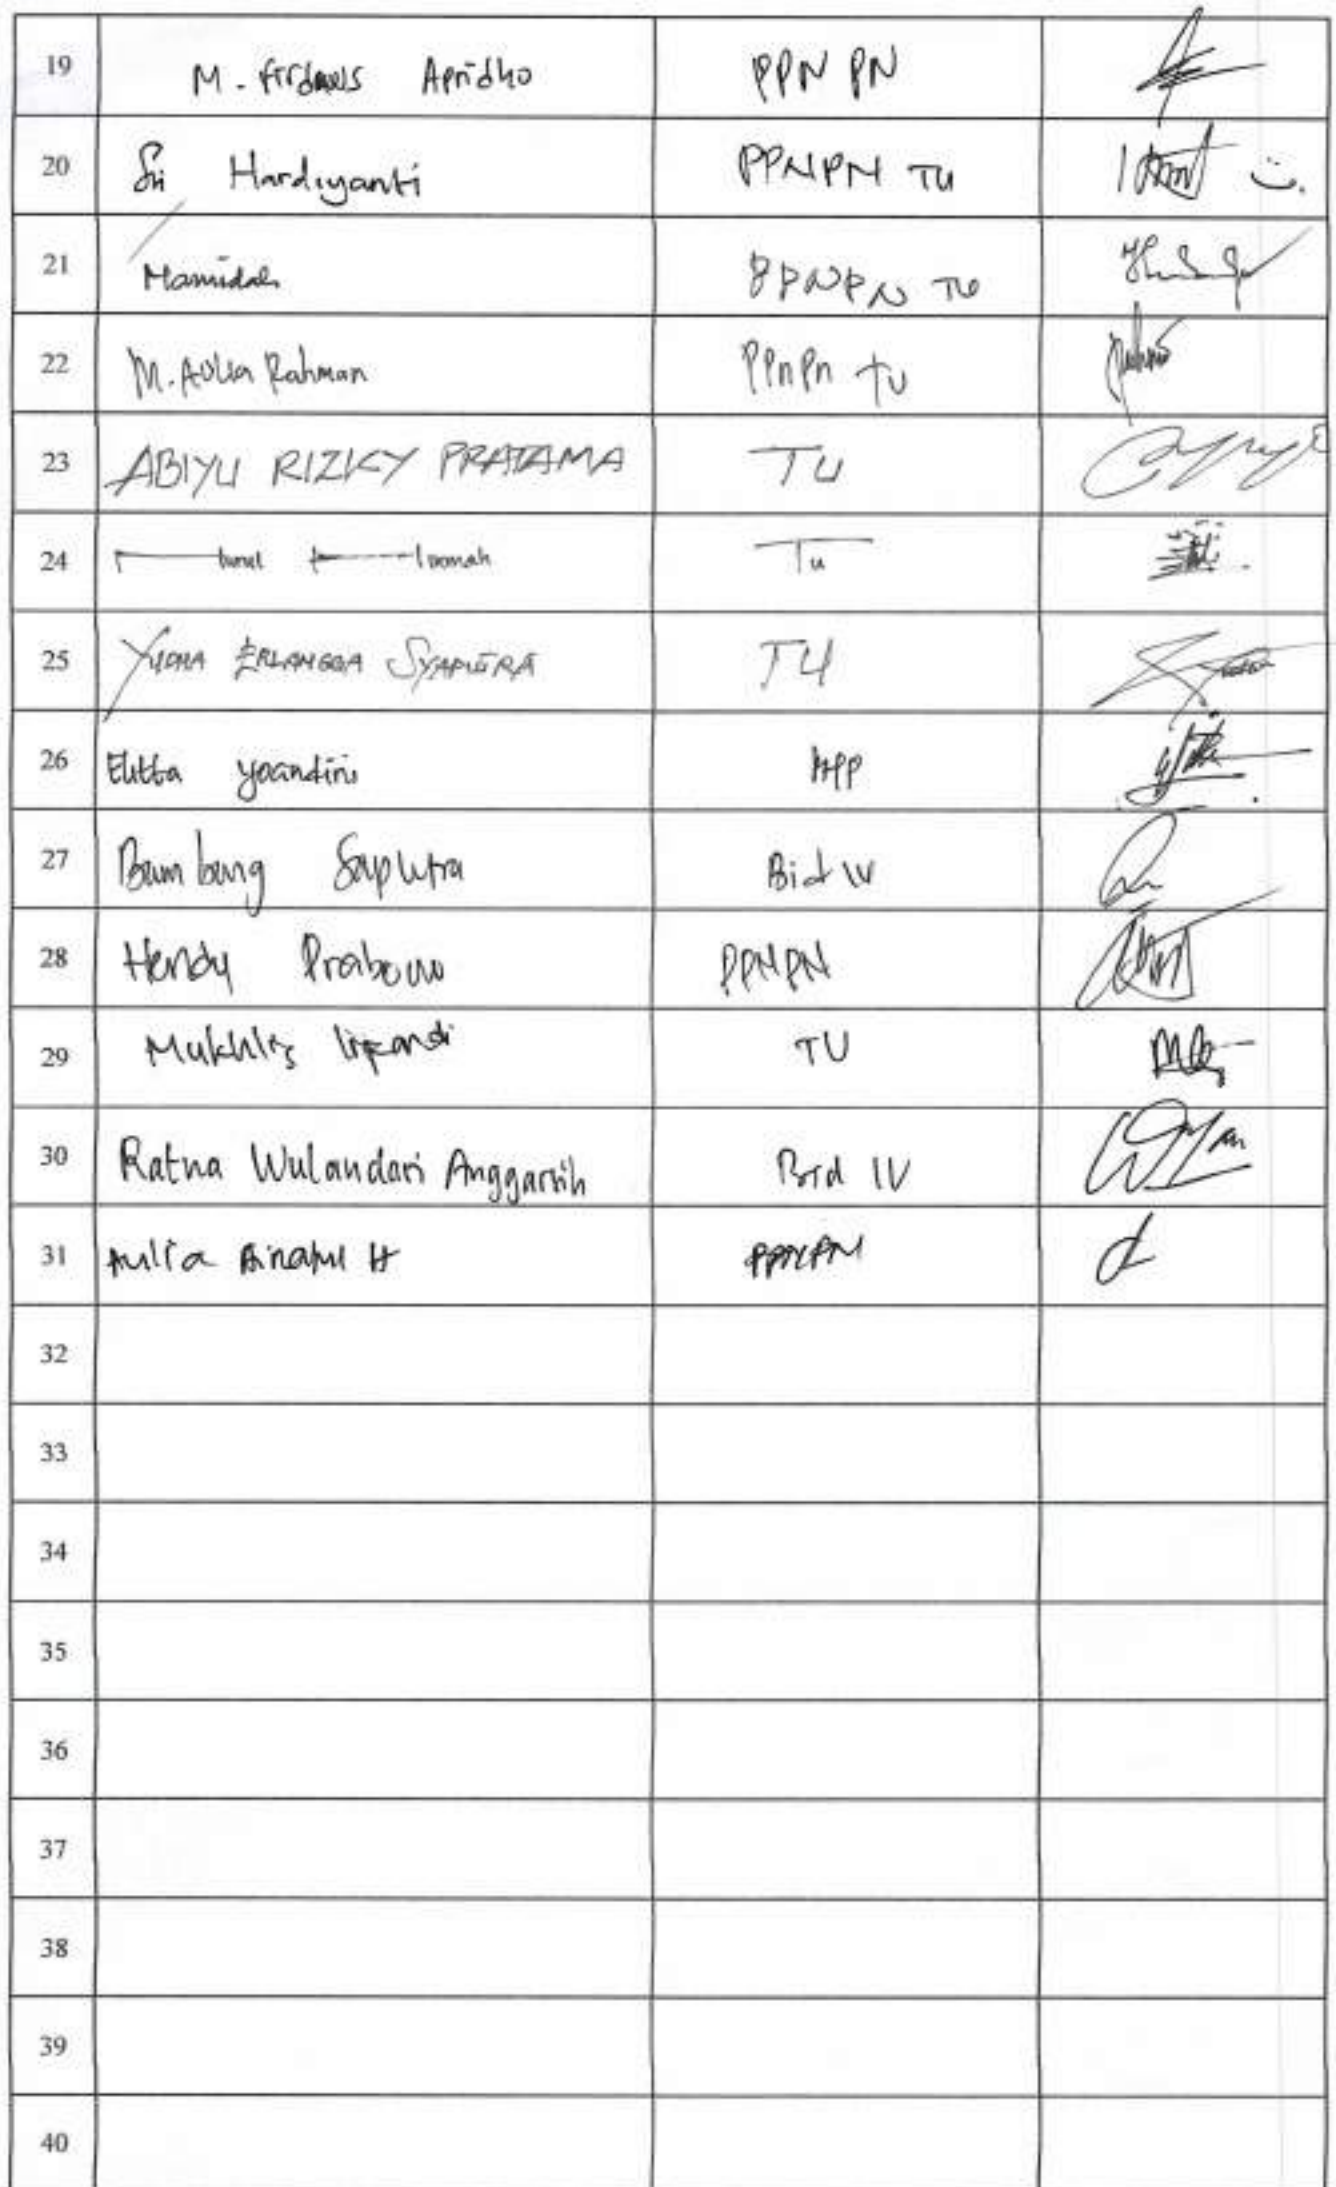 19 M. Firdaus Apridho PPN PN
20 Sri Hardiyanti PPNPN TU
21 Hamidah PPNPN TU
22 M. Aulia Rahman PPnPn TU
23 ABIYU RIZKY PRATAMA TU
24 TU
25 YUDHA ERLANGGA SYAPUTRA TU
26 Elitta Yoandini
27 Bambang Saputra Bid IV
28 Hendy Prabowo PPNPN
29 Mukhlis TU
30 Ratna Wulandari Anggarsih Bid IV
31 Aulia Ainatul H PPNPN
32
33
34
35
36
37
38
39
40